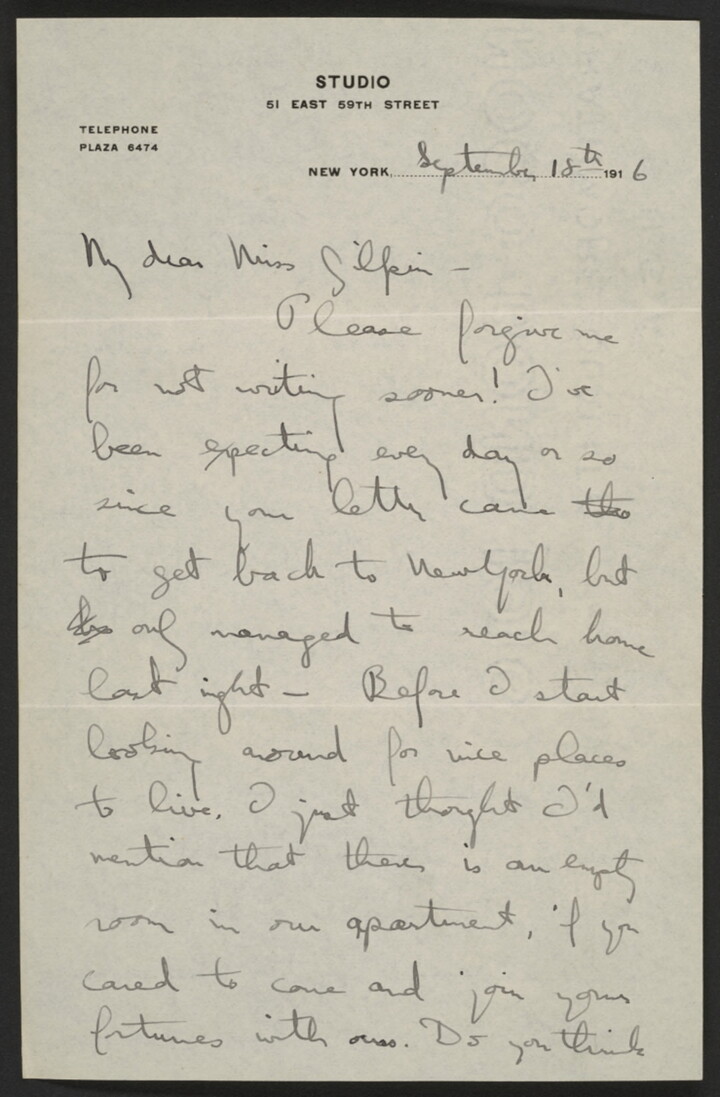 STUDIO
51 EAST 59TH STREET
TELEPHONE
PLAZA 6474
NEW YORK, September 18th 1916
My dear Miss Gilpin —
Please forgive me
for not writing sooner! I've
been expecting every day or so
since your letter came
to get back to New York, but
only managed to reach home
last night — Before I start
looking around for nice places
to live, I just thought I'd
mention that there is an empty
room in our apartment, if you
cared to come and join your
fortunes with ours. Do you think